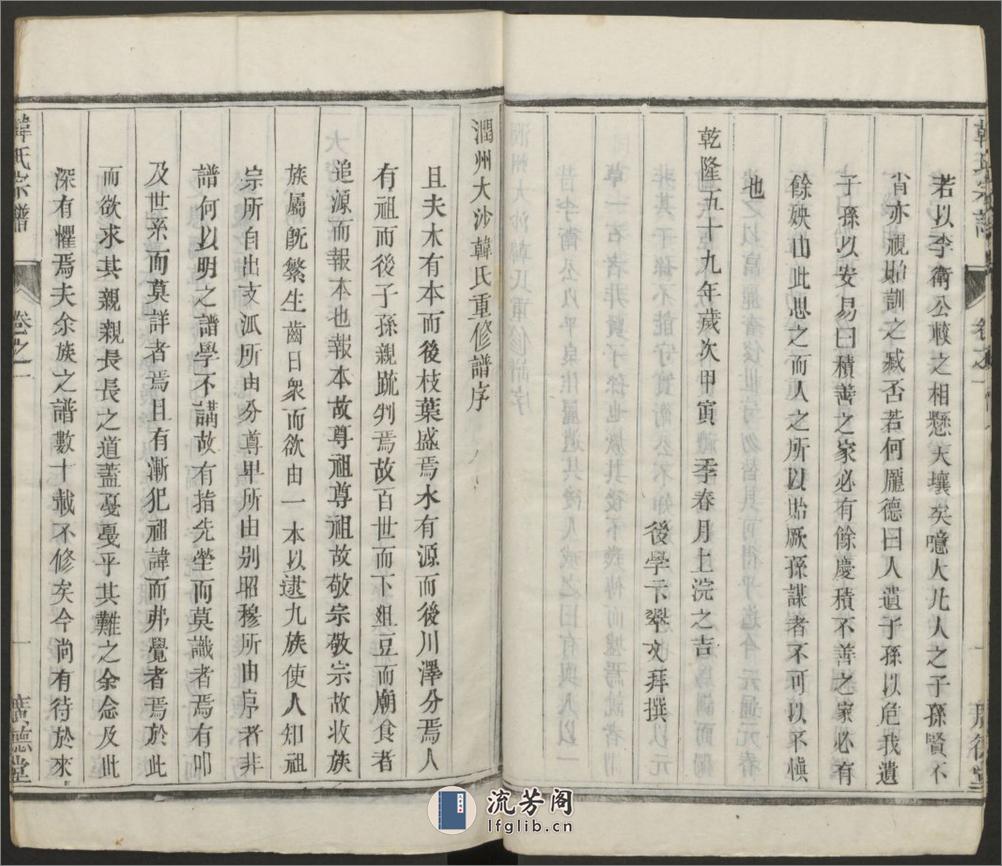 韓氏宗譜
卷之一
若以李衛公較之相懸天壤矣噫大凡人之子孫賢不
肖亦視貽訓之臧否若何龐德曰人遺子孫以危我遺
子孫以安易曰積善之家必有餘慶積不善之家必有
餘殃由此思之而人之所以貽厥孫謀者不可以不慎
也
乾隆五十九年歲次甲寅季春月上浣之吉
後學卞翠文拜撰
潤州大沙韓氏重修譜序
且夫木有本而後枝葉盛焉水有源而後川澤分焉人
有祖而後子孫親疏判焉故百世而下俎豆而廟食者
追源而報本也報本故尊祖尊祖故敬宗敬宗故收族
族屬旣繁生齒日衆而欲由一本以逮九族使人知祖
宗所自出支派所由分尊卑所由别昭穆所由序者非
譜何以明之譜學不講故有指先塋而莫識者焉有叩
及世系而莫詳者焉且有漸犯祖諱而弗覺者焉於此
而欲求其親親長長之道蓋戞戞乎其難之余念及此
深有懼焉夫余族之譜數十載不修矣今尚有待於來
韓氏宗譜
卷之一
一
廣德堂
流芳阁
lfglib.cn